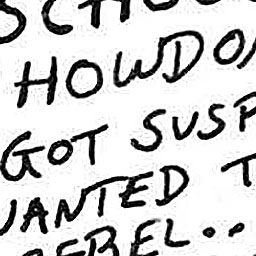 SCHO
HOWDO
GOT SUSP
WANTED T
REBEL..